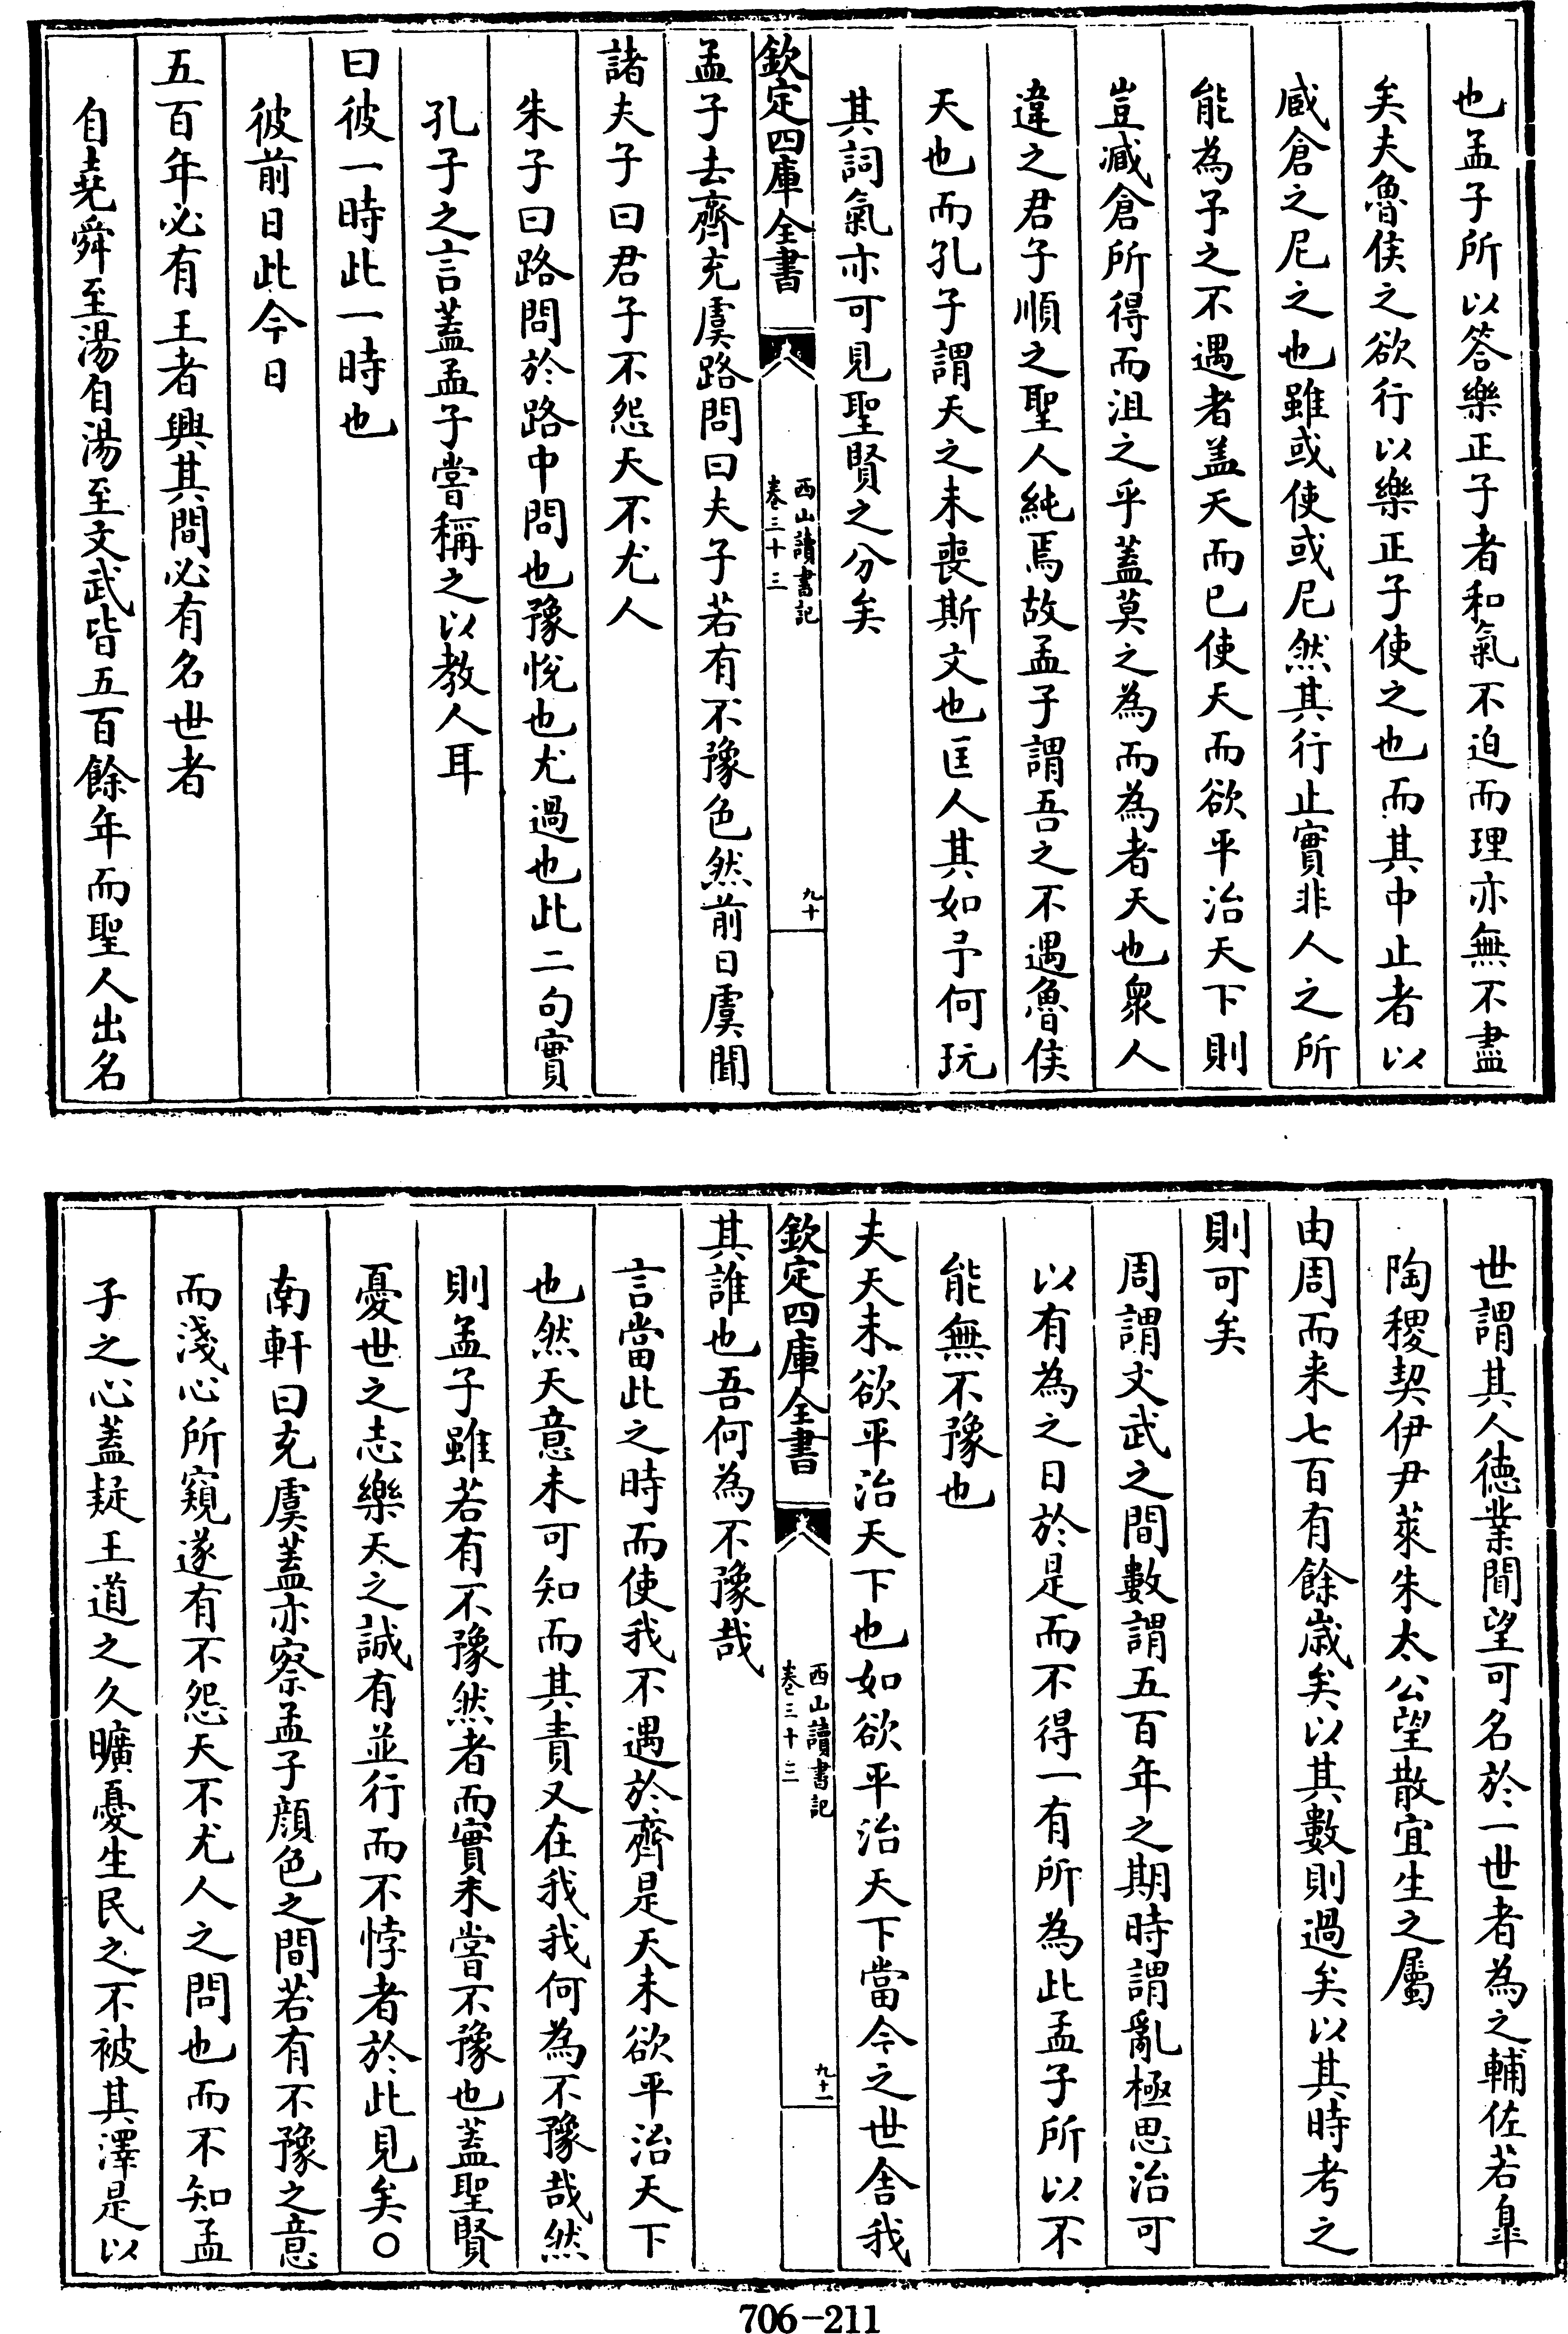 也孟子所以答樂正子者和氣不迫而理亦無不盡
矣夫魯侯之欲行以樂正子使之也而其中止者以
臧倉之尼之也雖或使或尼然其行止實非人之所
能為予之不遇者盖天而已使天而欲平治天下則
豈臧倉所得而沮之乎蓋莫之為而為者天也衆人
違之君子順之聖人純焉故孟子謂吾之不遇魯侯
天也而孔子謂天之未喪斯文也匡人其如予何玩
其詞氣亦可見聖賢之分矣
欽定四庫全書
西山讀書記
卷三十三
九十
孟子去齊充虞路問曰夫子若有不豫色然前日虞聞
諸夫子曰君子不怨天不尤人
朱子曰路問於路中問也豫悅也尤過也此二句實
孔子之言蓋孟子嘗稱之以教人耳
曰彼一時此一時也
彼前日此今日
五百年必有王者興其間必有名世者
自堯舜至湯自湯至文武皆五百餘年而聖人出名
世謂其人德業聞望可名於一世者為之輔佐若皐
陶稷契伊尹萊朱太公望散宜生之屬
由周而来七百有餘歲矣以其數則過矣以其時考之
則可矣
周謂文武之間數謂五百年之期時謂亂極思治可
以有為之日於是而不得一有所為此孟子所以不
能無不豫也
夫天未欲平治天下也如欲平治天下當今之世舍我
欽定四庫全書
西山讀書記
卷三十三
九十一
其誰也吾何為不豫哉
言當此之時而使我不遇於齊是天未欲平治天下
也然天意未可知而其責又在我我何為不豫哉然
則孟子雖若有不豫然者而實未嘗不豫也蓋聖賢
憂世之志樂天之誠有並行而不悖者於此見矣○
南軒曰充虞蓋亦察孟子顔色之間若有不豫之意
而淺心所窺遂有不怨天不尤人之問也而不知孟
子之心蓋疑王道之久曠憂生民之不被其澤是以
706-211